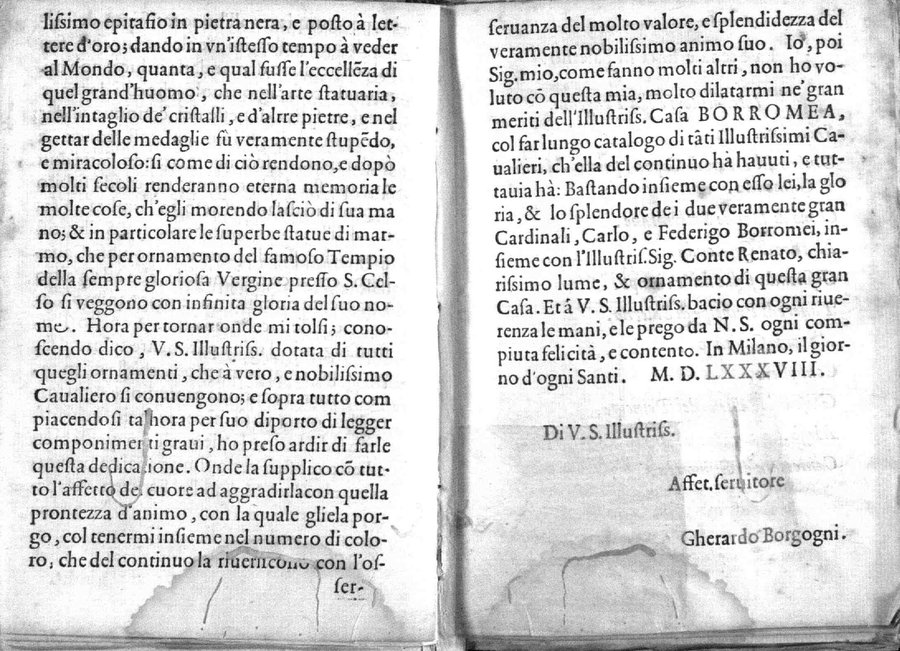 liſſimo epitafio in pietra nera, e poſto à let-
tere d'oro; dando in vn'iſteſſo tempo à veder
al Mondo, quanta, e qual fuſſe l'eccellẽza di
quel grand'huomo, che nell'arte ſtatuaria,
nell'intaglio de' criſtalli, e d'altre pietre, e nel
gettar delle medaglie fù veramente ſtupẽdo,
e miracoloſo: ſi come di ciò rendono, e dopò
molti ſecoli renderanno eterna memoria le
molte coſe, ch'egli morendo laſciò di ſua ma
no; & in particolare le ſuperbe ſtatue di mar-
mo, che per ornamento del famoſo Tempio
della ſempre glorioſa Vergine preſſo S. Cel-
ſo ſi veggono con infinita gloria del ſuo no-
me. Hora per tornar onde mi tolſi; cono-
ſcendo dico, V. S. Illuſtriſſ. dotata di tutti
quegli ornamenti, che à vero, e nobiliſſimo
Caualiero ſi conuengono; e ſopra tutto com
piacendoſi tal'hora per ſuo diporto di legger
componimenti graui, ho preſo ardir di farle
queſta dedicatione. Onde la ſupplico cõ tut-
to l'affetto del cuore ad aggradirla con quella
prontezza d'animo, con la quale gliela por-
go, col tenermi inſieme nel numero di colo-
ro, che del continuo la riueriſcono con l'oſ-
ſer-
ſeruanza del molto valore, e ſplendidezza del
veramente nobiliſſimo animo ſuo. Io, poi
Sig. mio, come fanno molti altri, non ho vo-
luto cõ queſta mia, molto dilatarmi ne' gran
meriti dell'Illuſtriſſ. Caſa BORROMEA,
col far lungo catalogo di tãti Illuſtriſſimi Ca-
ualieri, ch'ella del continuo hà hauuti, e tut-
tauia hà: Baſtando inſieme con eſſo lei, la glo
ria, & lo ſplendore de i due veramente gran
Cardinali, Carlo, e Federigo Borromei, in-
ſieme con l'Illuſtriſ. Sig. Conte Renato, chia-
riſſimo lume, & ornamento di queſta gran
Caſa. Et á V. S. Illuſtriſſ. bacio con ogni riue-
renza le mani, e le prego da N. S. ogni com-
piuta felicità, e contento. In Milano, il gior-
no d'ogni Santi. M. D. LXXXVIII.
Di V. S. Illuſtriſſ.
Affet. ſeruitore
Gherardo Borgogni.